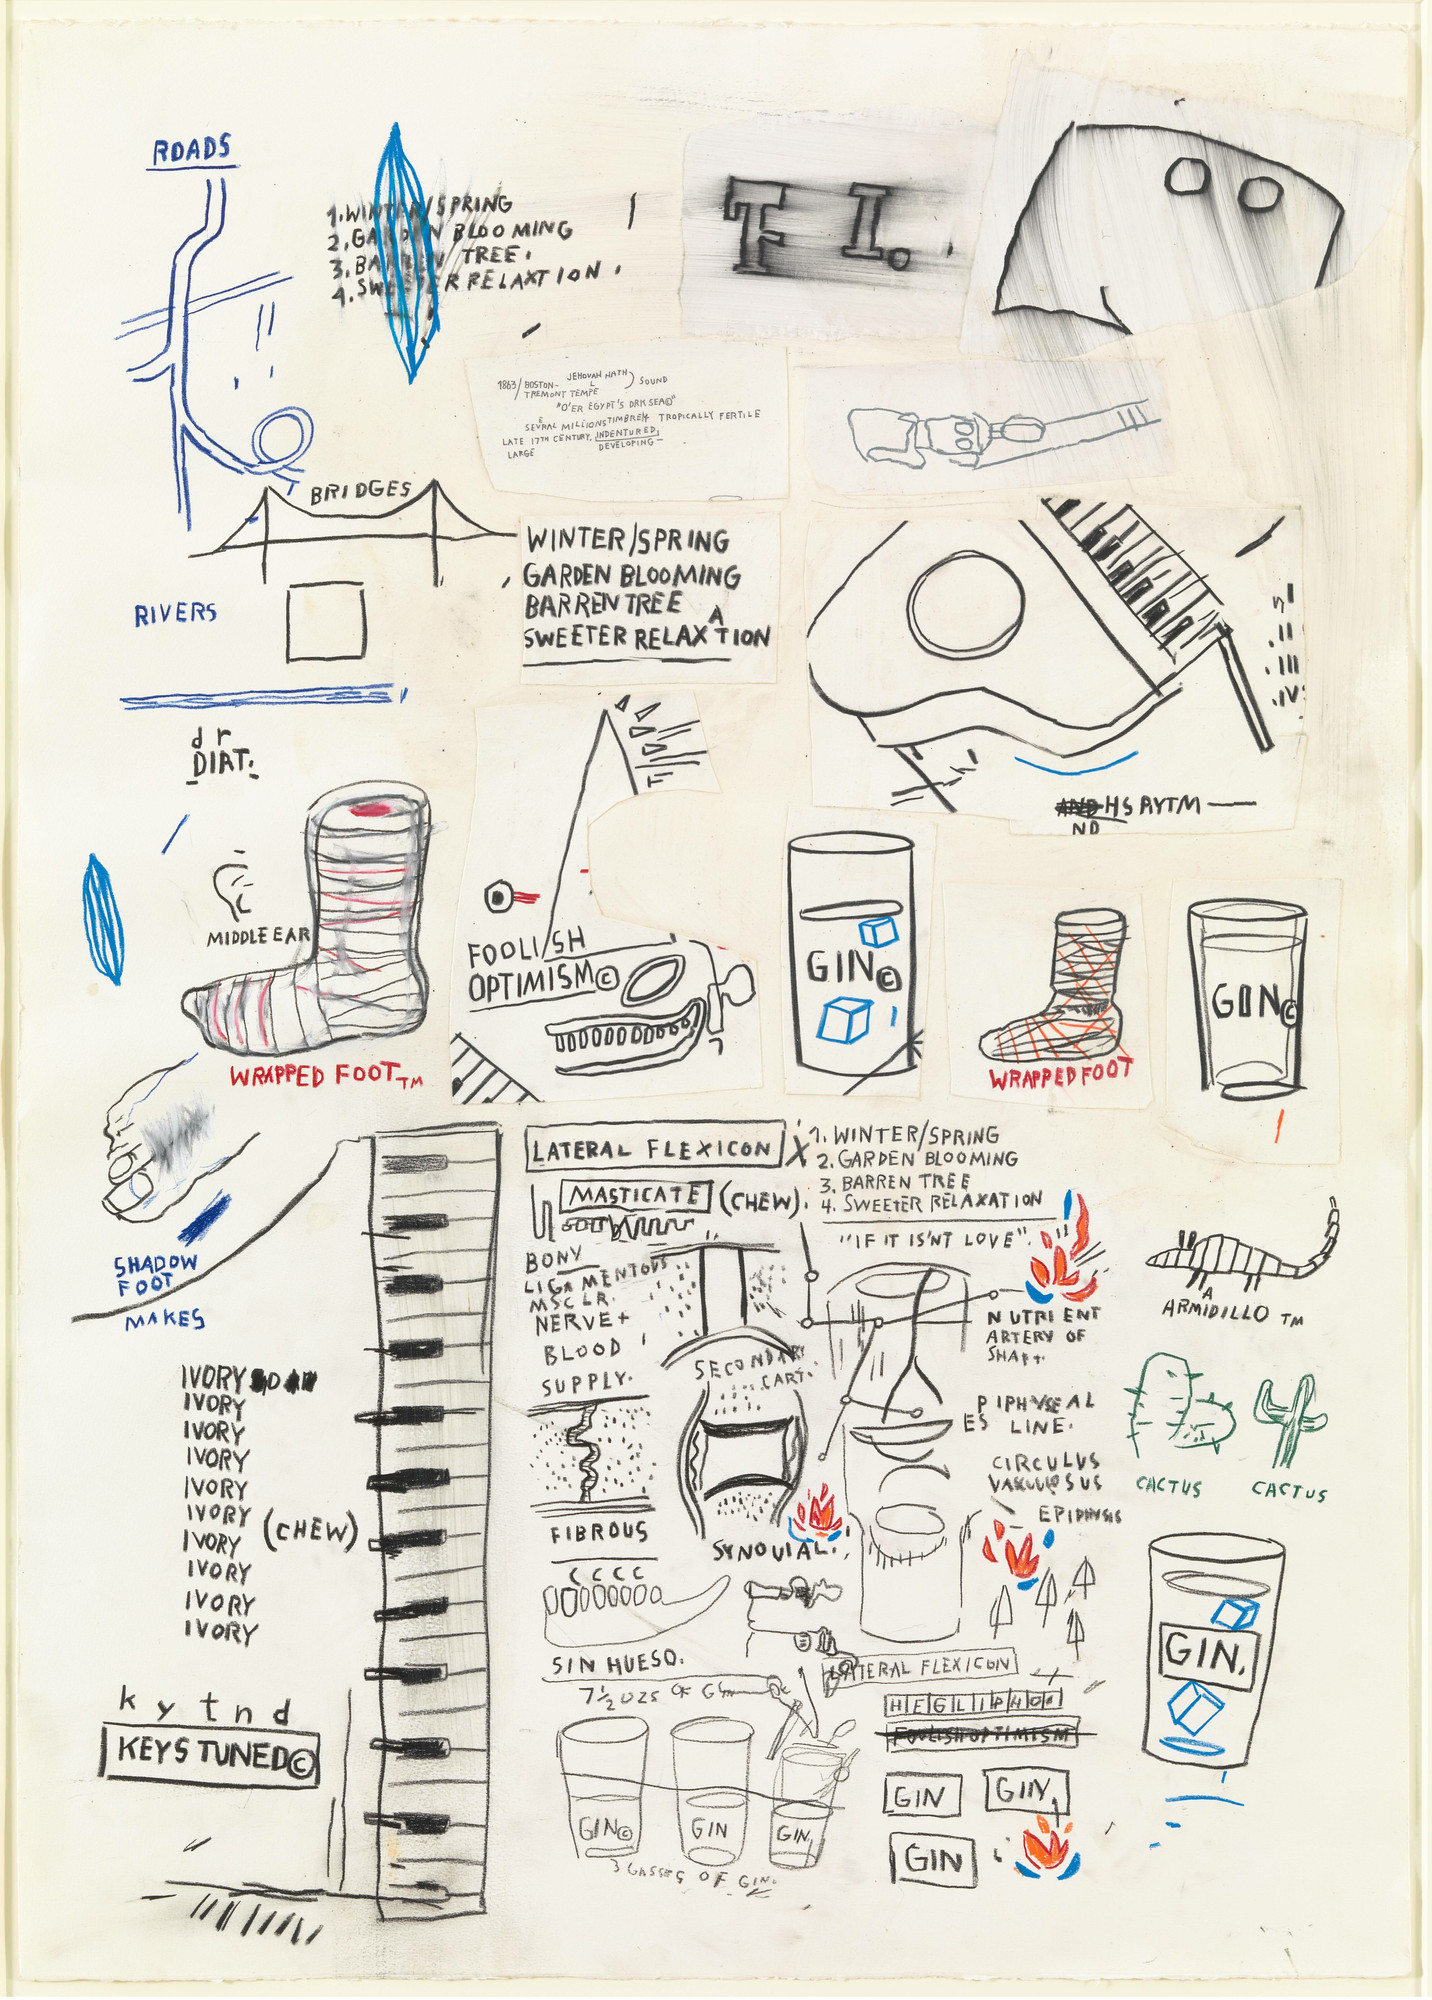 ROADS
1. WINTER/SPRING
2. GARDEN BLOOMING
3. BARREN TREE.
4. SWEETER RELAXTION.
F I.
1863/ BOSTON-
TREMONT TEMPE
L
JEHOVAH HATH
SOUND
"O'ER EGYPT'S DRK SEA©"
SEVRAL MILLIONS TIMBREH TROPICALLY FERTILE
E
LATE 17TH CENTURY, INDENTURED,
LARGE
DEVELOPING-
BRIDGES
WINTER/SPRING
GARDEN BLOOMING
BARREN TREE
SWEETER RELAXTION
A
RIVERS
I
II
III
IV
dr
DIAT.
AND HS RYTM
ND
MIDDLE EAR
WRAPPED FOOT TM
FOOLISH
OPTIMISM©
GIN©
WRAPPED FOOT
GON©
LATERAL FLEXICON X
MASTICATE (CHEW).
1. WINTER/SPRING
2. GARDEN BLOOMING
3. BARREN TREE
4. SWEETER RELAXATION
"IF IT ISN'T LOVE".
BONY
LIGAMENTOUS
MSCLR.
NERVE +
BLOOD
SUPPLY.
SECONDARY
CART.
NUTRIENT
ARTERY OF
SHAFT.
PIPHYSEAL
ES LINE.
CIRCULUS
VASCULOSUS
EPIPHYSIS
ARMIDILLO TM
A
CACTUS
CACTUS
SHADOW
FOOT
MAKES
IVORY SOAP
IVORY
IVORY
IVORY
IVORY
IVORY (CHEW)
IVORY
IVORY
IVORY
IVORY
FIBROUS
SYNOVIAL.
CCCC
SIN HUESO.
7 1/2 OZS OF GIN
LATERAL FLEXICON
FOOLISH OPTIMISM
GIN.
kytnd
KEYS TUNED©
GIN©
GIN
GIN.
3 GASSES OF GIN.
GIN
GIN.
GIN